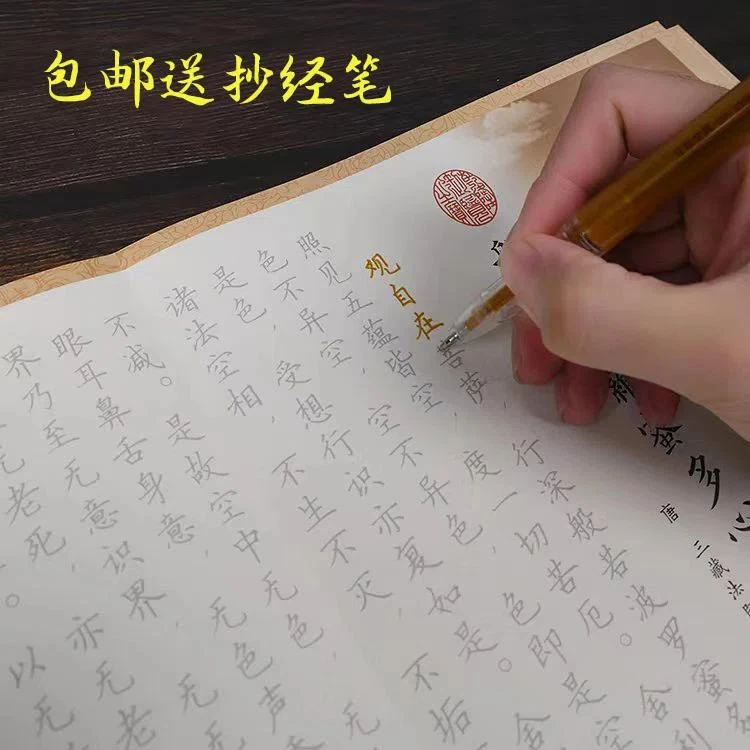 包邮送抄经笔
蜜多心
唐 三藏法
观自在菩萨，行深般若波罗蜜多
照见五蕴皆空，度一切苦厄。舍利
色不异空，空不异色，色即是空
是色，受想行识亦复如是。舍
诸法空相，不生不灭，不垢
不减。是故空中无色，无
眼耳鼻舌身意，无色声
界乃至无意识界，无
老死，亦无老
。以无